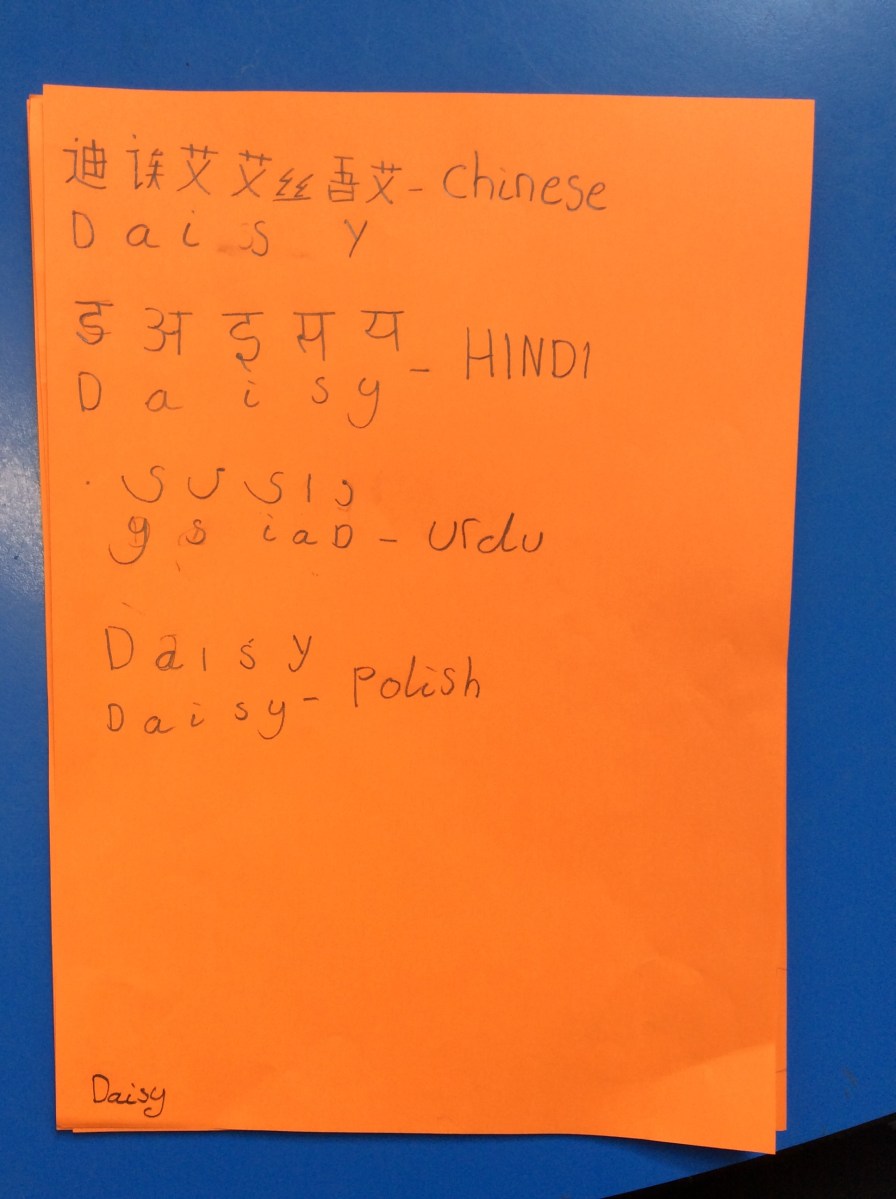 迪诶艾艾丝吾艾 - Chinese
D a i s y
ड अ इ स य
D a i s y - HINDI
ی س ی ا د
y s i a D - Urdu
D a i s y
D a i s y - Polish
Daisy